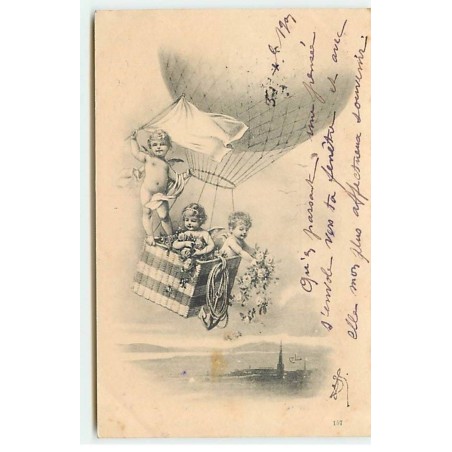 Qu'en passant, une pensée
s'envole vers ta fenêtre et avec
elle mon plus affectueux souvenir.